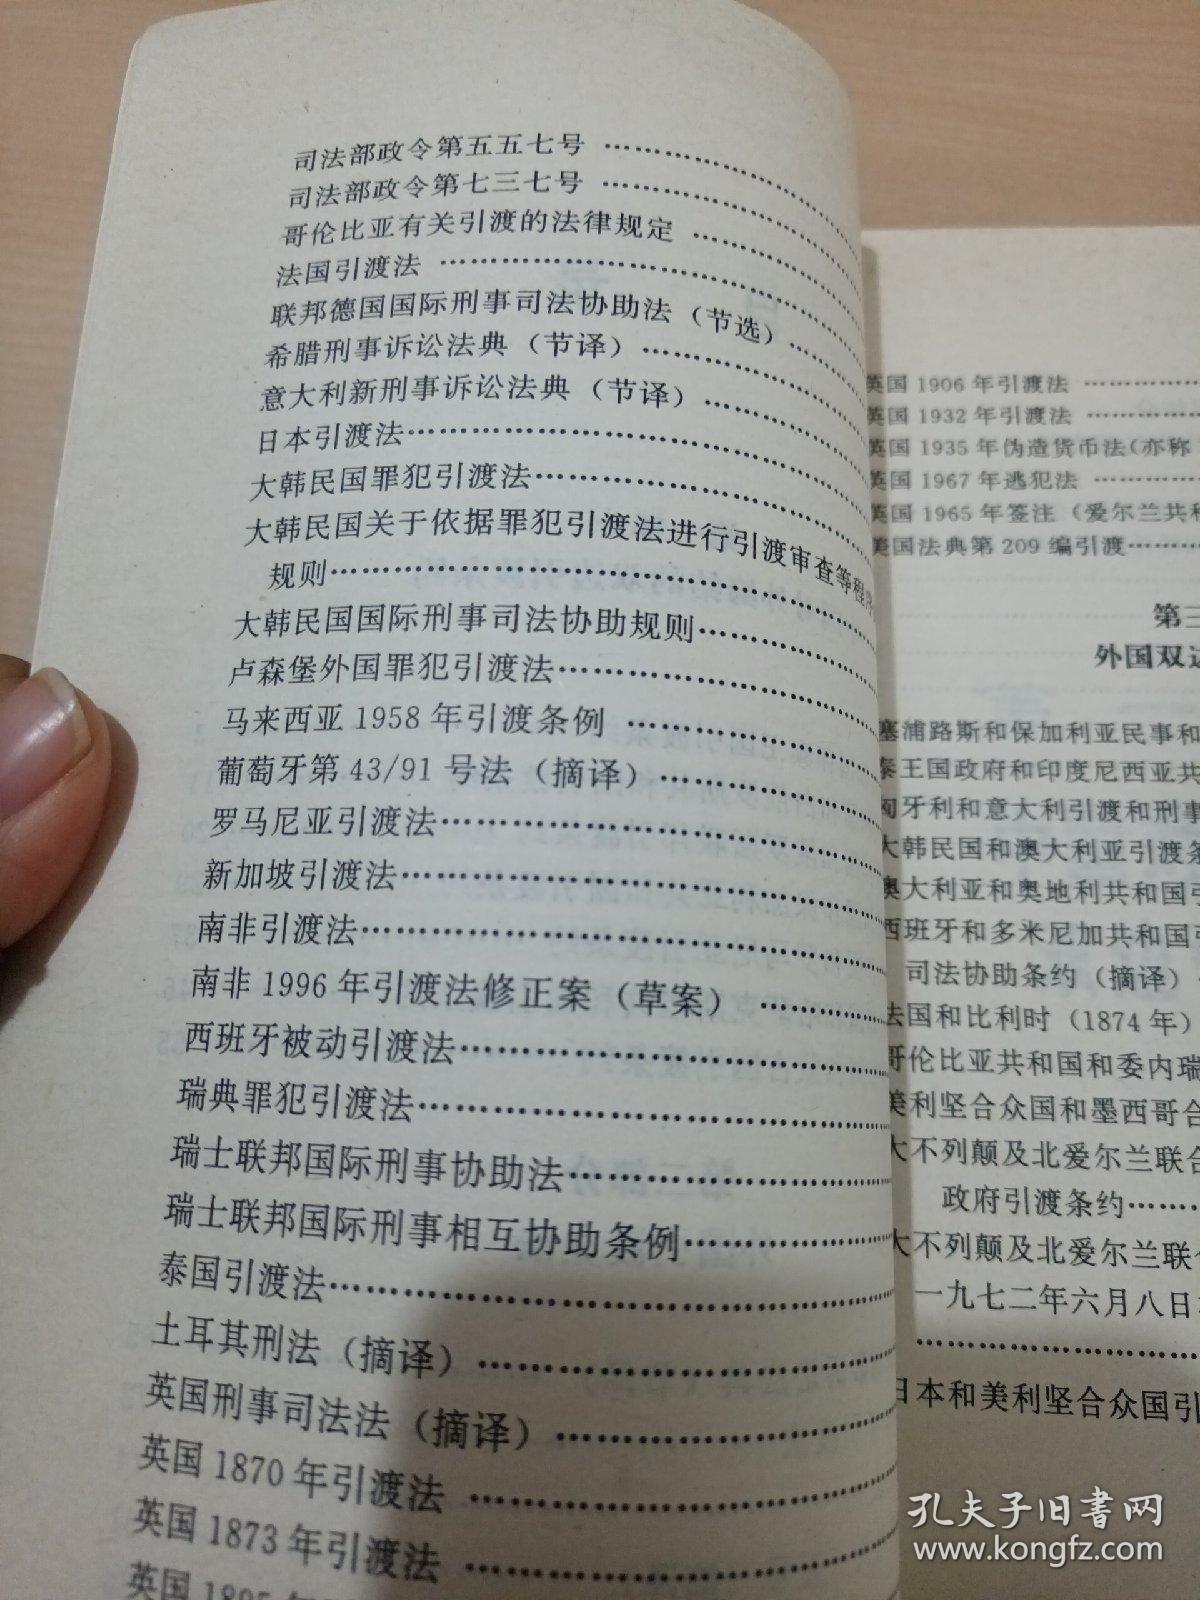 司法部政令第五五七号
司法部政令第七三七号
哥伦比亚有关引渡的法律规定
法国引渡法
联邦德国国际刑事司法协助法（节选）
希腊刑事诉讼法典（节译）
意大利新刑事诉讼法典（节译）
日本引渡法
大韩民国罪犯引渡法
大韩民国关于依据罪犯引渡法进行引渡审查等程序
规则
大韩民国国际刑事司法协助规则
卢森堡外国罪犯引渡法
马来西亚1958年引渡条例
葡萄牙第43/91号法（摘译）
罗马尼亚引渡法
新加坡引渡法
南非引渡法
南非1996年引渡法修正案（草案）
西班牙被动引渡法
瑞典罪犯引渡法
瑞士联邦国际刑事协助法
瑞士联邦国际刑事相互协助条例
泰国引渡法
土耳其刑法（摘译）
英国刑事司法法（摘译）
英国1870年引渡法
英国1873年引渡法
英国1895
英国1906年引渡法
英国1932年引渡法
英国1935年伪造货币法（亦称
英国1967年逃犯法
英国1965年签注（爱尔兰共和
美国法典第209编引渡
第三
外国双边
塞浦路斯和保加利亚民事和
泰王国政府和印度尼西亚共
匈牙利和意大利引渡和刑事
大韩民国和澳大利亚引渡条
澳大利亚和奥地利共和国引
西班牙和多米尼加共和国引
司法协助条约（摘译）
法国和比利时（1874年）
哥伦比亚共和国和委内瑞
美利坚合众国和墨西哥合
大不列颠及北爱尔兰联合
政府引渡条约
大不列颠及北爱尔兰联合
一九七二年六月八日
日本和美利坚合众国引
孔夫子旧书网
www.kongfz.com